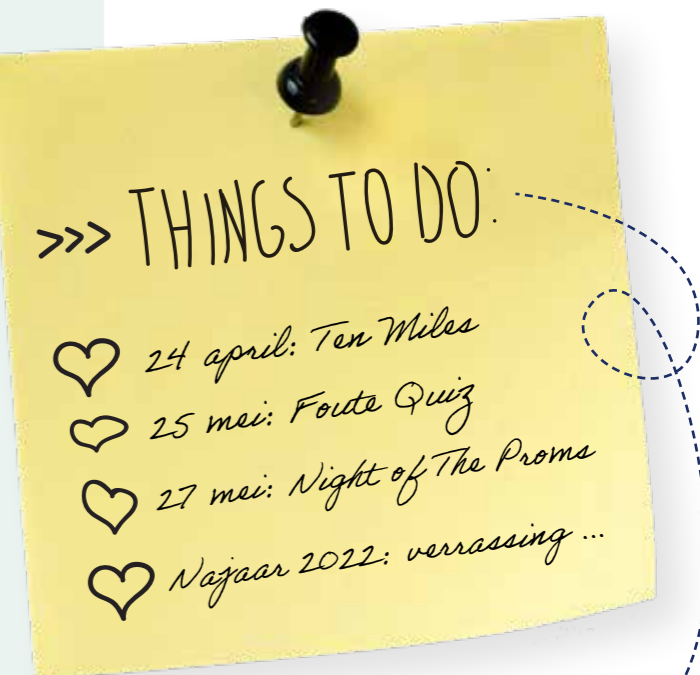 >>> THINGS TO DO:
24 april: Ten Miles
25 mei: Foute Quiz
27 mei: Night of The Proms
Najaar 2022: verrassing ...